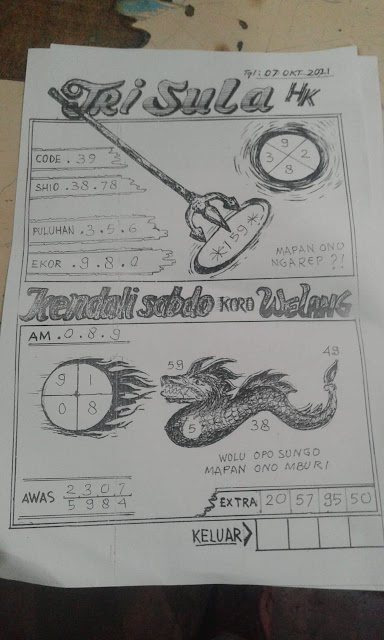 Tgl: 07 OKT. 2021
Tri Sula HK
CODE . 39
SHIO . 38.78
PULUHAN . 3.5.6
EKOR . 9.8.0
9
3 2
8
*159*
MAPAN ONO
NGAREP ?!
Kendali sabdo KORO WELANG
AM . 0.8.9
9 1
0 8
59
49
5
38
WOLU OPO SUNGO
MAPAN ONO MBURI
AWAS 2307
5984
EXTRA 20 57 95 50
KELUAR